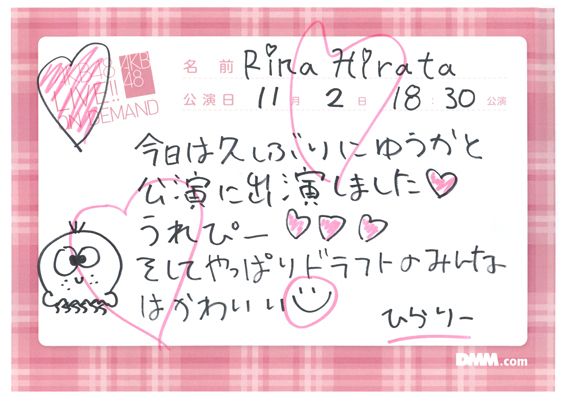 AKB48
LIVE!!
ON DEMAND
AKB
48
名前 Rina Hirata
公演日 11月 2日 18:30 公演
今日は久しぶりにゆうかと
公演に出演しました
うれぴー
そしてやっぱりドラフトのみんな
はかわいい
ひらりー
DMM.com